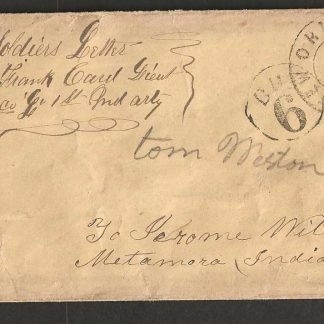 Soldiers Letter
Frank Card Lieut
Co G 1st Ind arty
DUE
6
WOR
tom Weston
To Jerome Wil
Metamora, India